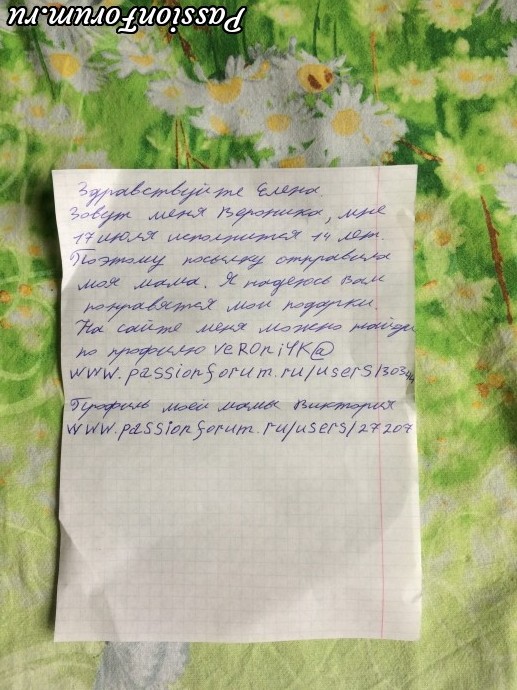 PassionForum.ru
Здравствуйте Елена
Зовут меня Вероника, мне
17 июля исполнится 14 лет.
Поэтому посылку отправила
моя мама. Я надеюсь вам
понравятся мои подарки
На сайте меня можно найди
по профилю VeROniЧK@
www.passionforum.ru/users/30344
Профиль моей мамы Виктория
www.passionforum.ru/users/27207